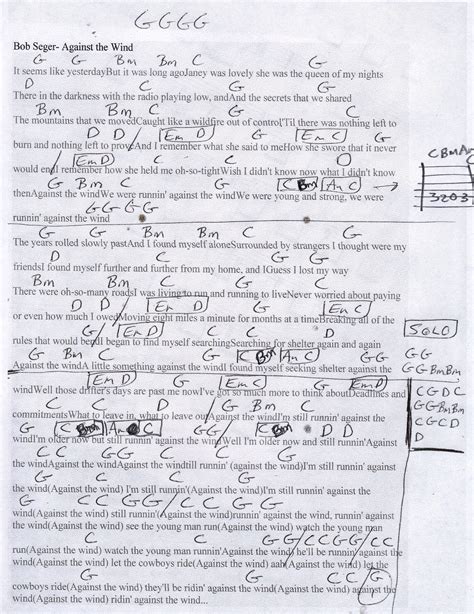 G G G G
Bob Seger- Against the Wind
G G Bm Bm C G
It seems like yesterdayBut it was long agoJaney was lovely she was the queen of my nights
D C G
There in the darkness with the radio playing low, andAnd the secrets that we shared
Bm C G
The mountains that we movedCaught like a wildfire out of control'Til there was nothing left to
D D / Em D G Em C
burn and nothing left to proveAnd I remember what she said to meHow she swore that it never
G / Em D C C D
would endI remember how she held me oh-so-tightWish I didn't know now what I didn't know
G Bm C Bm Am C →
thenAgainst the windWe were runnin' against the windWe were young and strong, we were
G G G G
runnin' against the wind
CBmA
3203
G Bm Bm C G
The years rolled slowly pastAnd I found myself aloneSurrounded by strangers I thought were my
D C G
friendsI found myself further and further from my home, and IGuess I lost my way
Bm C G
There were oh-so-many roadsI was living to run and running to liveNever worried about paying
D D / Em D G Em C
or even how much I owedMoving eight miles a minute for months at a timeBreaking all of the
G / Em D C C D
rules that would bendI began to find myself searchingSearching for shelter again and again
G Bm G C Bm Am C
Against the windA little something against the windI found myself seeking shelter against the
Em D G Em C G Em D
windWell those drifter's days are past me nowI've got so much more to think aboutDeadlines and
C C D G Bm
commitmentsWhat to leave in, what to leave outAgainst the windI'm still runnin' against the
G C Bm Am C C Bm D D
windI'm older now but still runnin' against the windWell I'm older now and still runnin'Against
C C G G C C G
the windAgainst the windAgainst the windtill runnin' (against the wind)I'm still runnin' against
the wind(Against the wind) I'm still runnin'(Against the wind)I'm still runnin' against the
wind(Against the wind) still runnin'(Against the wind)runnin' against the wind, runnin' against
the wind(Against the wind) see the young man run(Against the wind) watch the young man
run(Against the wind) watch the young man runnin'(Against the wind) he'll be runnin' against the
wind(Against the wind) let the cowboys ride(Against the wind) aah(Against the wind) let the
G C G
cowboys ride(Against the wind) they'll be ridin' against the wind(Against the wind) against the
wind(Against the wind) ridin' against the wind...
SOLO
GG
GG
GGBmBm
CGDC
GGBmBm
CGCD
D